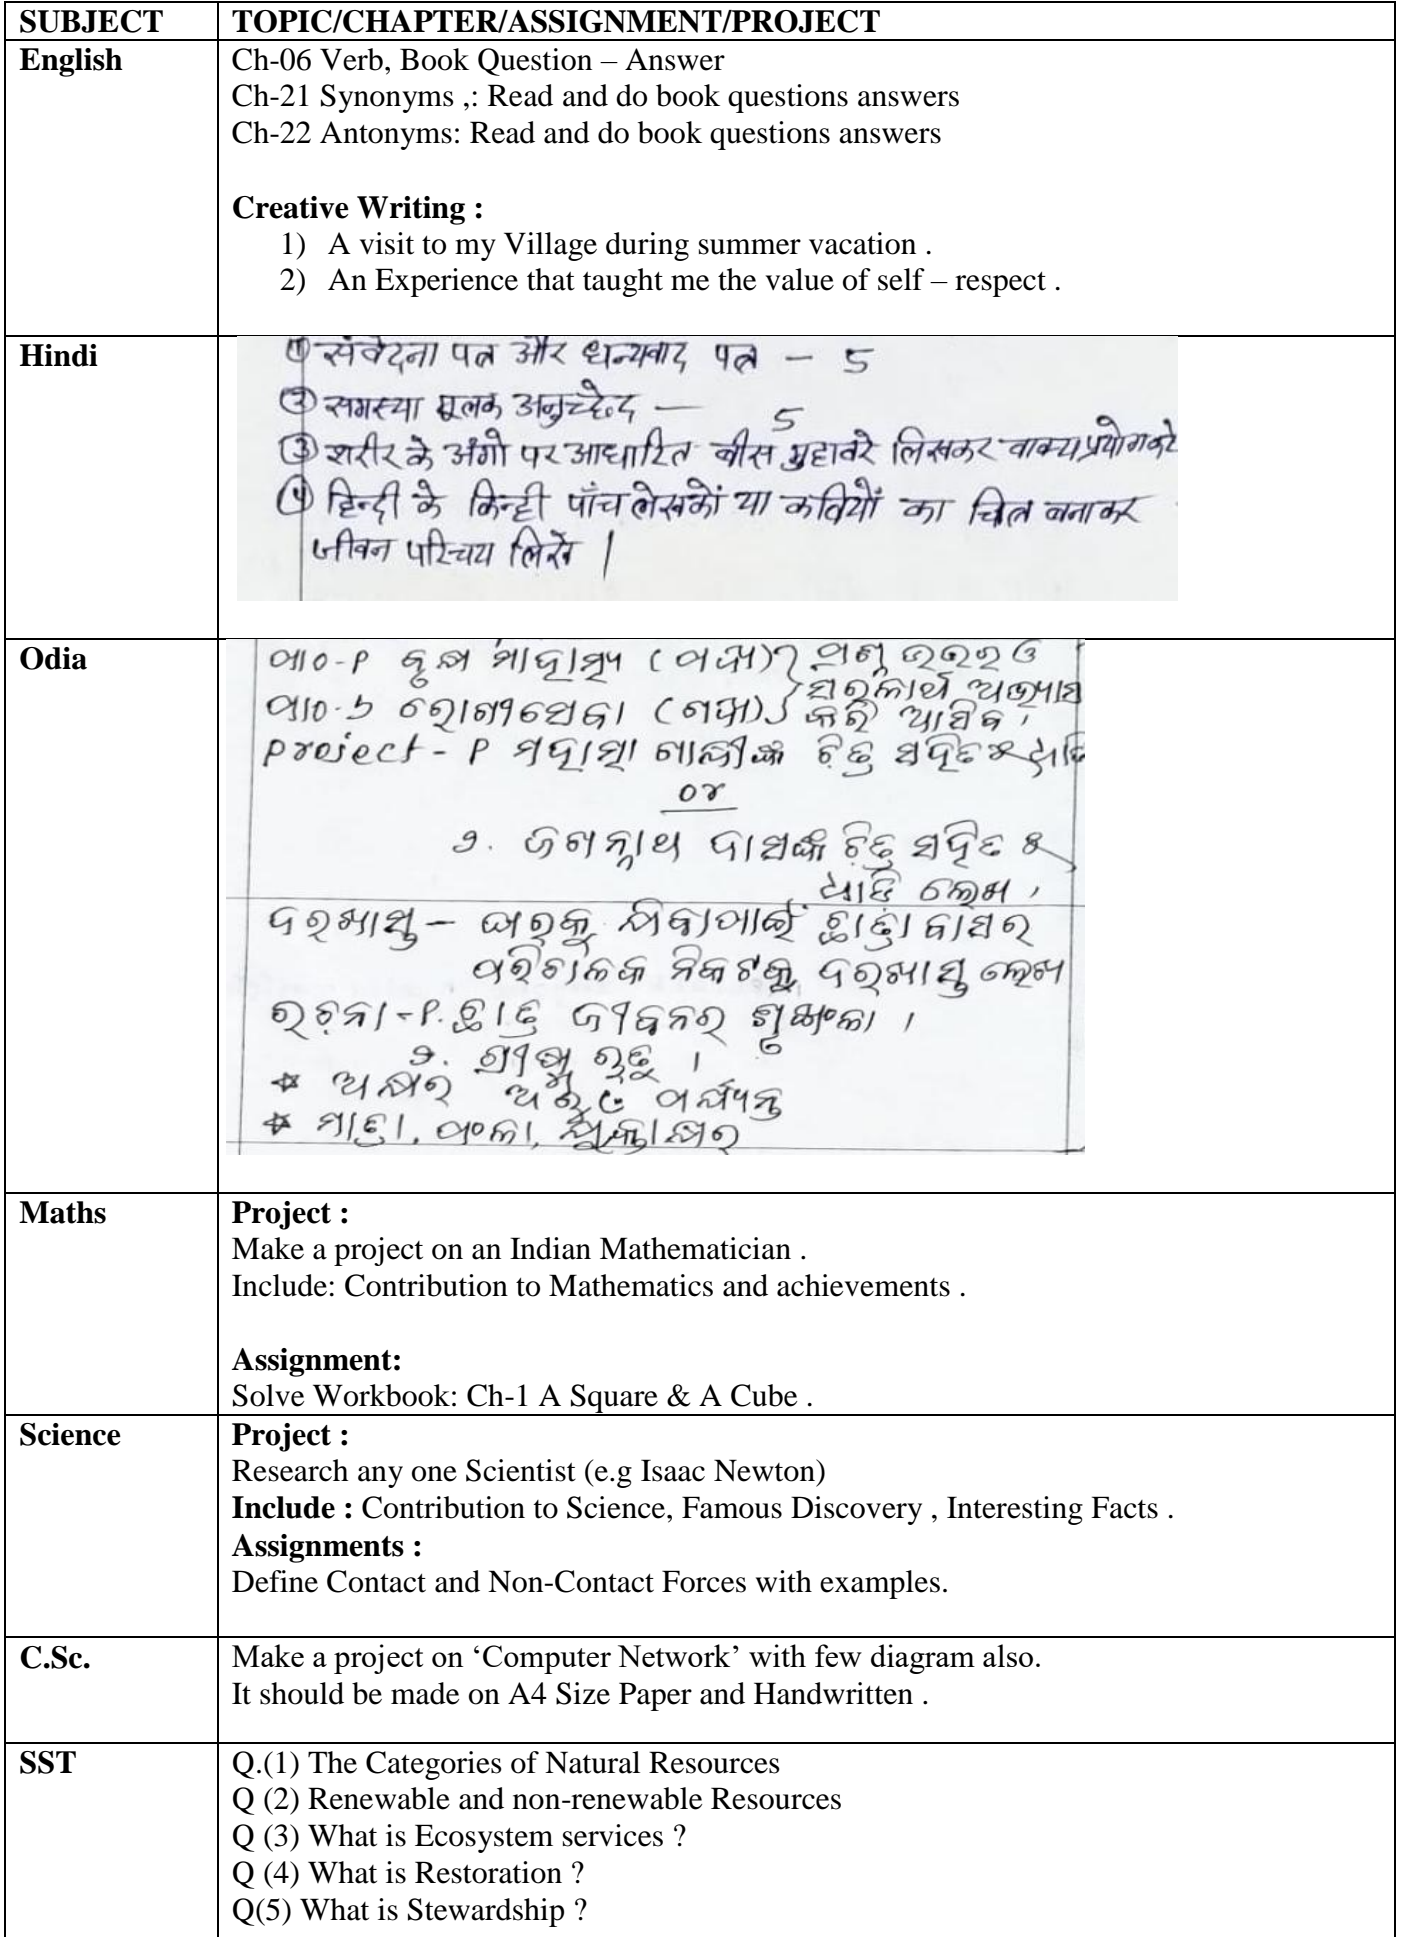 SUBJECT TOPIC/CHAPTER/ASSIGNMENT/PROJECT
English Ch-06 Verb, Book Question – Answer
Ch-21 Synonyms ,: Read and do book questions answers
Ch-22 Antonyms: Read and do book questions answers
Creative Writing :
1) A visit to my Village during summer vacation .
2) An Experience that taught me the value of self – respect .
Hindi
① संवेदना पत्र और धन्यवाद पत्र – 5
② समस्या मूलक अनुच्छेद — 5
③ शरीर के अंगो पर आधारित बीस मुहावरे लिखकर वाक्य प्रयोग करे
④ हिन्दी के किन्ही पाँच लेखकों या कवियों का चित्र बनाकर
जीवन परिचय लिखें |
Odia
ପାଠ-୧ ବୃକ୍ଷ ମାହାତ୍ମ୍ୟ (ପଦ୍ୟ) ପ୍ରଶ୍ନ ଉତ୍ତର ଓ
ସରଳାର୍ଥ ଅଭ୍ୟାସ
ପାଠ-୬ ରୋଗୀସେବା (ଗଦ୍ୟ) କରି ଆସିବ ।
project - ୧ ମହାତ୍ମା ଗାନ୍ଧୀଙ୍କ ଚିତ୍ର ସହିତ
or
୨. ଜଗନ୍ନାଥ ଦାସଙ୍କ ଚିତ୍ର ସହିତ ୫
ଧାଡି ଲେଖ ।
ଦରଖାସ୍ତ – ଘରକୁ ଯିବାପାଇଁ ଛାତ୍ରାବାସର
ପରିଚାଳକ ନିକଟକୁ ଦରଖାସ୍ତ ଲେଖ
ରଚନା -୧. ଛାତ୍ର ଜୀବନର ଶୃଙ୍ଖଳା ।
୨. ଗ୍ରୀଷ୍ମ ଋତୁ ।
☆ ଅକ୍ଷର ଅ ରୁ ପର୍ଯ୍ୟନ୍ତ
☆ ମାତ୍ରା, ଫଳା, ଯୁକ୍ତାକ୍ଷର
Maths Project :
Make a project on an Indian Mathematician .
Include: Contribution to Mathematics and achievements .
Assignment:
Solve Workbook: Ch-1 A Square & A Cube .
Science Project :
Research any one Scientist (e.g Isaac Newton)
Include : Contribution to Science, Famous Discovery , Interesting Facts .
Assignments :
Define Contact and Non-Contact Forces with examples.
C.Sc. Make a project on ‘Computer Network’ with few diagram also.
It should be made on A4 Size Paper and Handwritten .
SST Q.(1) The Categories of Natural Resources
Q (2) Renewable and non-renewable Resources
Q (3) What is Ecosystem services ?
Q (4) What is Restoration ?
Q(5) What is Stewardship ?